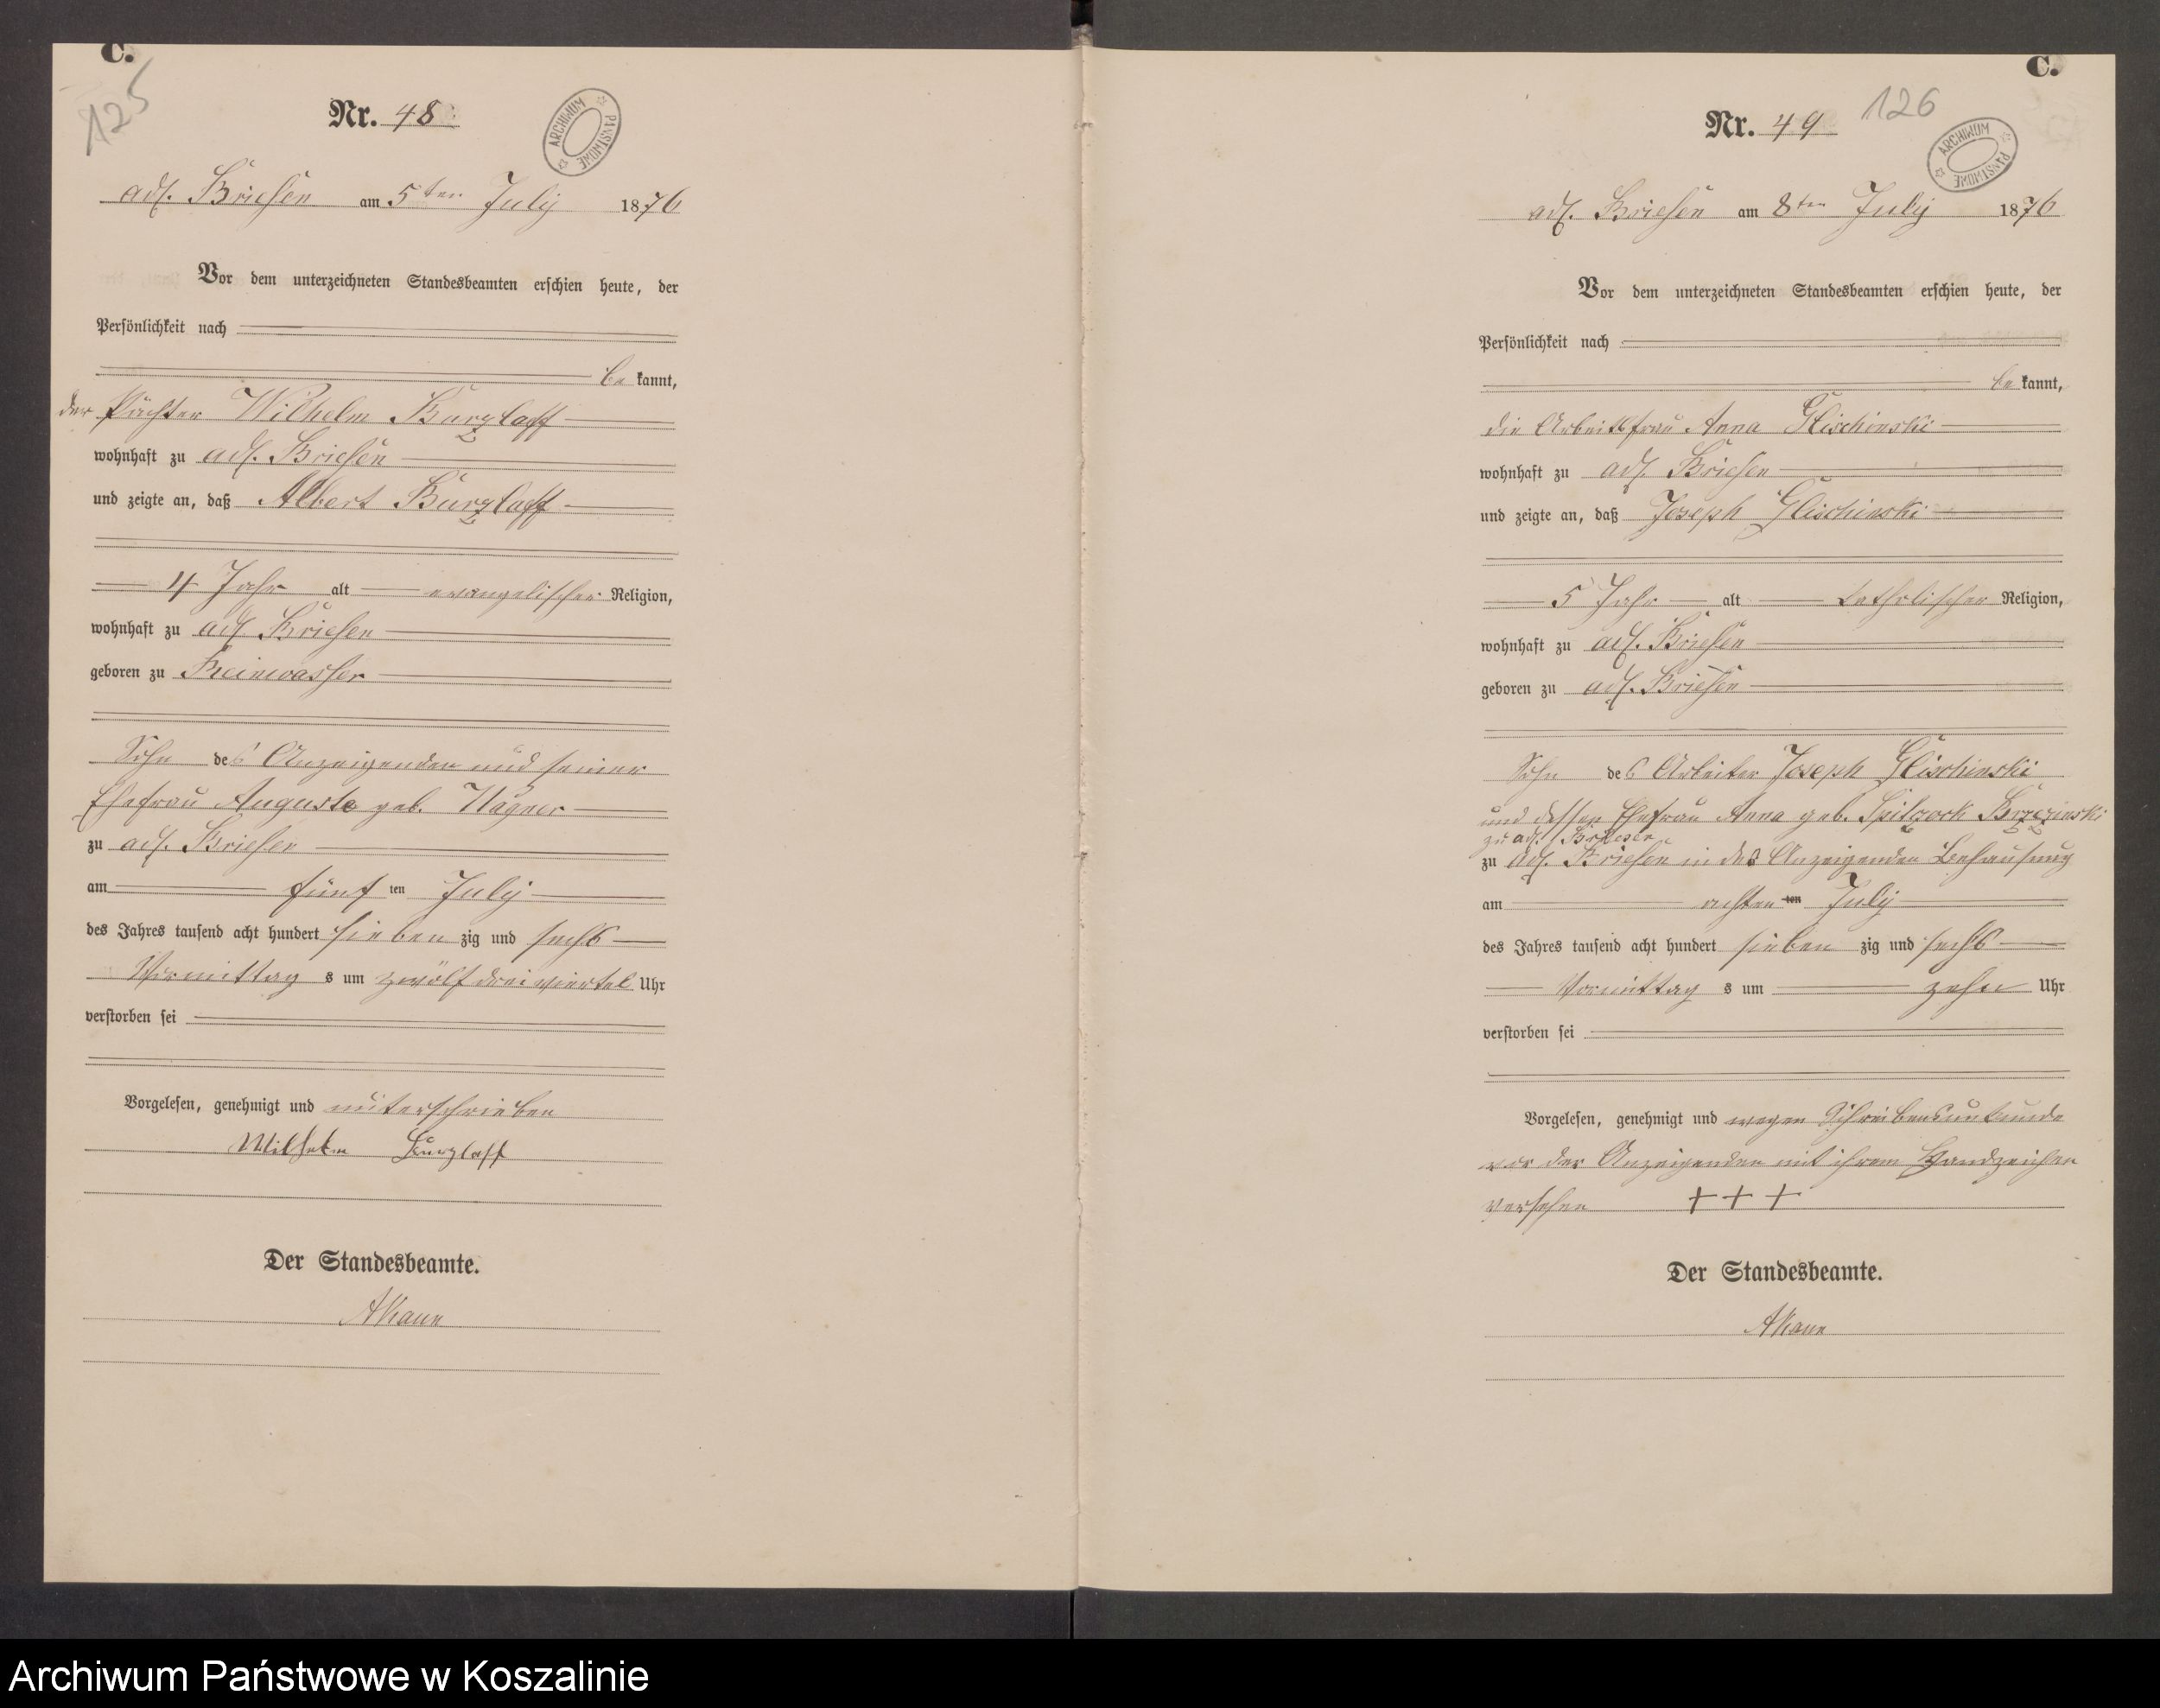 C.
125
Nr. 48
ARCHIWUM PAŃSTWOWE
adl. Briesen am 5ten July 1876
Vor dem unterzeichneten Standesbeamten erschien heute, der
Persönlichkeit nach
be kannt,
der Pächter Wilhelm Kurzlaff
wohnhaft zu adl. Briesen
und zeigte an, daß Albert Kurzlaff
4 Jahr alt evangelischer Religion,
wohnhaft zu adl. Briesen
geboren zu Reinwasser
Sohn des Anzeigenden und seiner
Ehefrau Auguste geb. Wagner
zu adl. Briesen
am fünf ten July
des Jahres tausend acht hundert sieben zig und sechs
Vormittag s um zwölf drei viertel Uhr
verstorben sei
Vorgelesen, genehmigt und unterschrieben
Wilhelm Kurzlaff
Der Standesbeamte.
C.
126
Nr. 49
ARCHIWUM PAŃSTWOWE
adl. Briesen am 8ten July 1876
Vor dem unterzeichneten Standesbeamten erschien heute, der
Persönlichkeit nach
be kannt,
die Arbeitsfrau Anna Glischinski
wohnhaft zu adl. Briesen
und zeigte an, daß Joseph Glischinski
5 Jahr alt katholischer Religion,
wohnhaft zu adl. Briesen
geboren zu adl. Briesen
Sohn des Arbeiter Joseph Glischinski
und dessen Ehefrau Anna geb. Spitzock Brzezinski
zu adl. Briesen
zu adl. Briesen in des Anzeigenden Behausung
am achten ten July
des Jahres tausend acht hundert sieben zig und sechs
Vormittag s um zehn Uhr
verstorben sei
Vorgelesen, genehmigt und wegen Schreibensunkunde
von der Anzeigenden mit ihrem Handzeichen
versehen + + +
Der Standesbeamte.
Archiwum Państwowe w Koszalinie